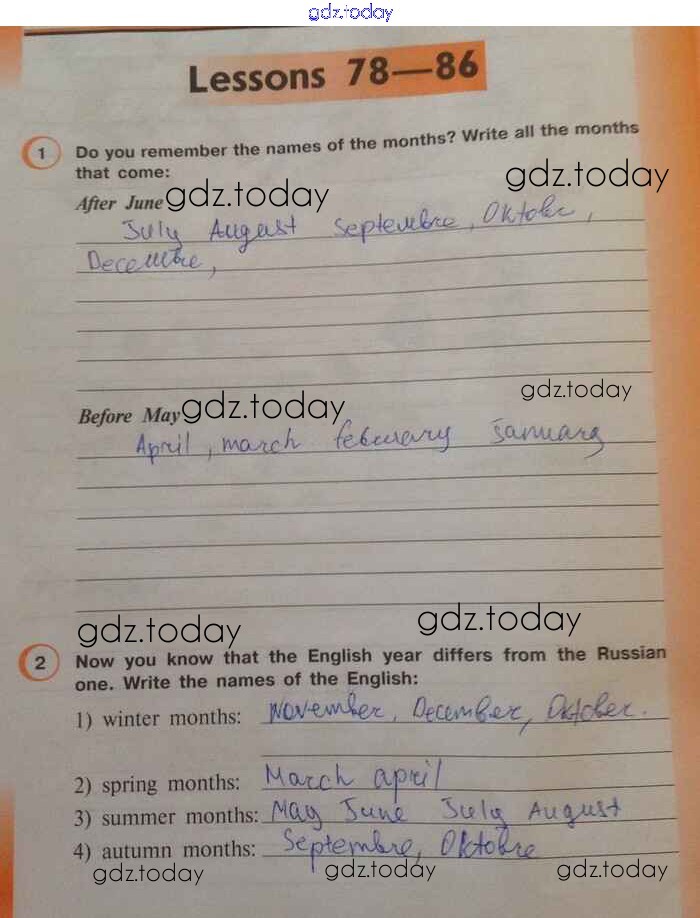 gdz.today
Lessons 78—86
1 Do you remember the names of the months? Write all the months
that come:
gdz.today
After June gdz.today
July August Septembre, Oktober,
Decembre,
gdz.today
Before May gdz.today
April, march february january
gdz.today gdz.today
2 Now you know that the English year differs from the Russian
one. Write the names of the English:
1) winter months: November, December, Oktober.
2) spring months: March april
3) summer months: May June July August
4) autumn months: Septembre, Oktobre
gdz.today gdz.today gdz.today